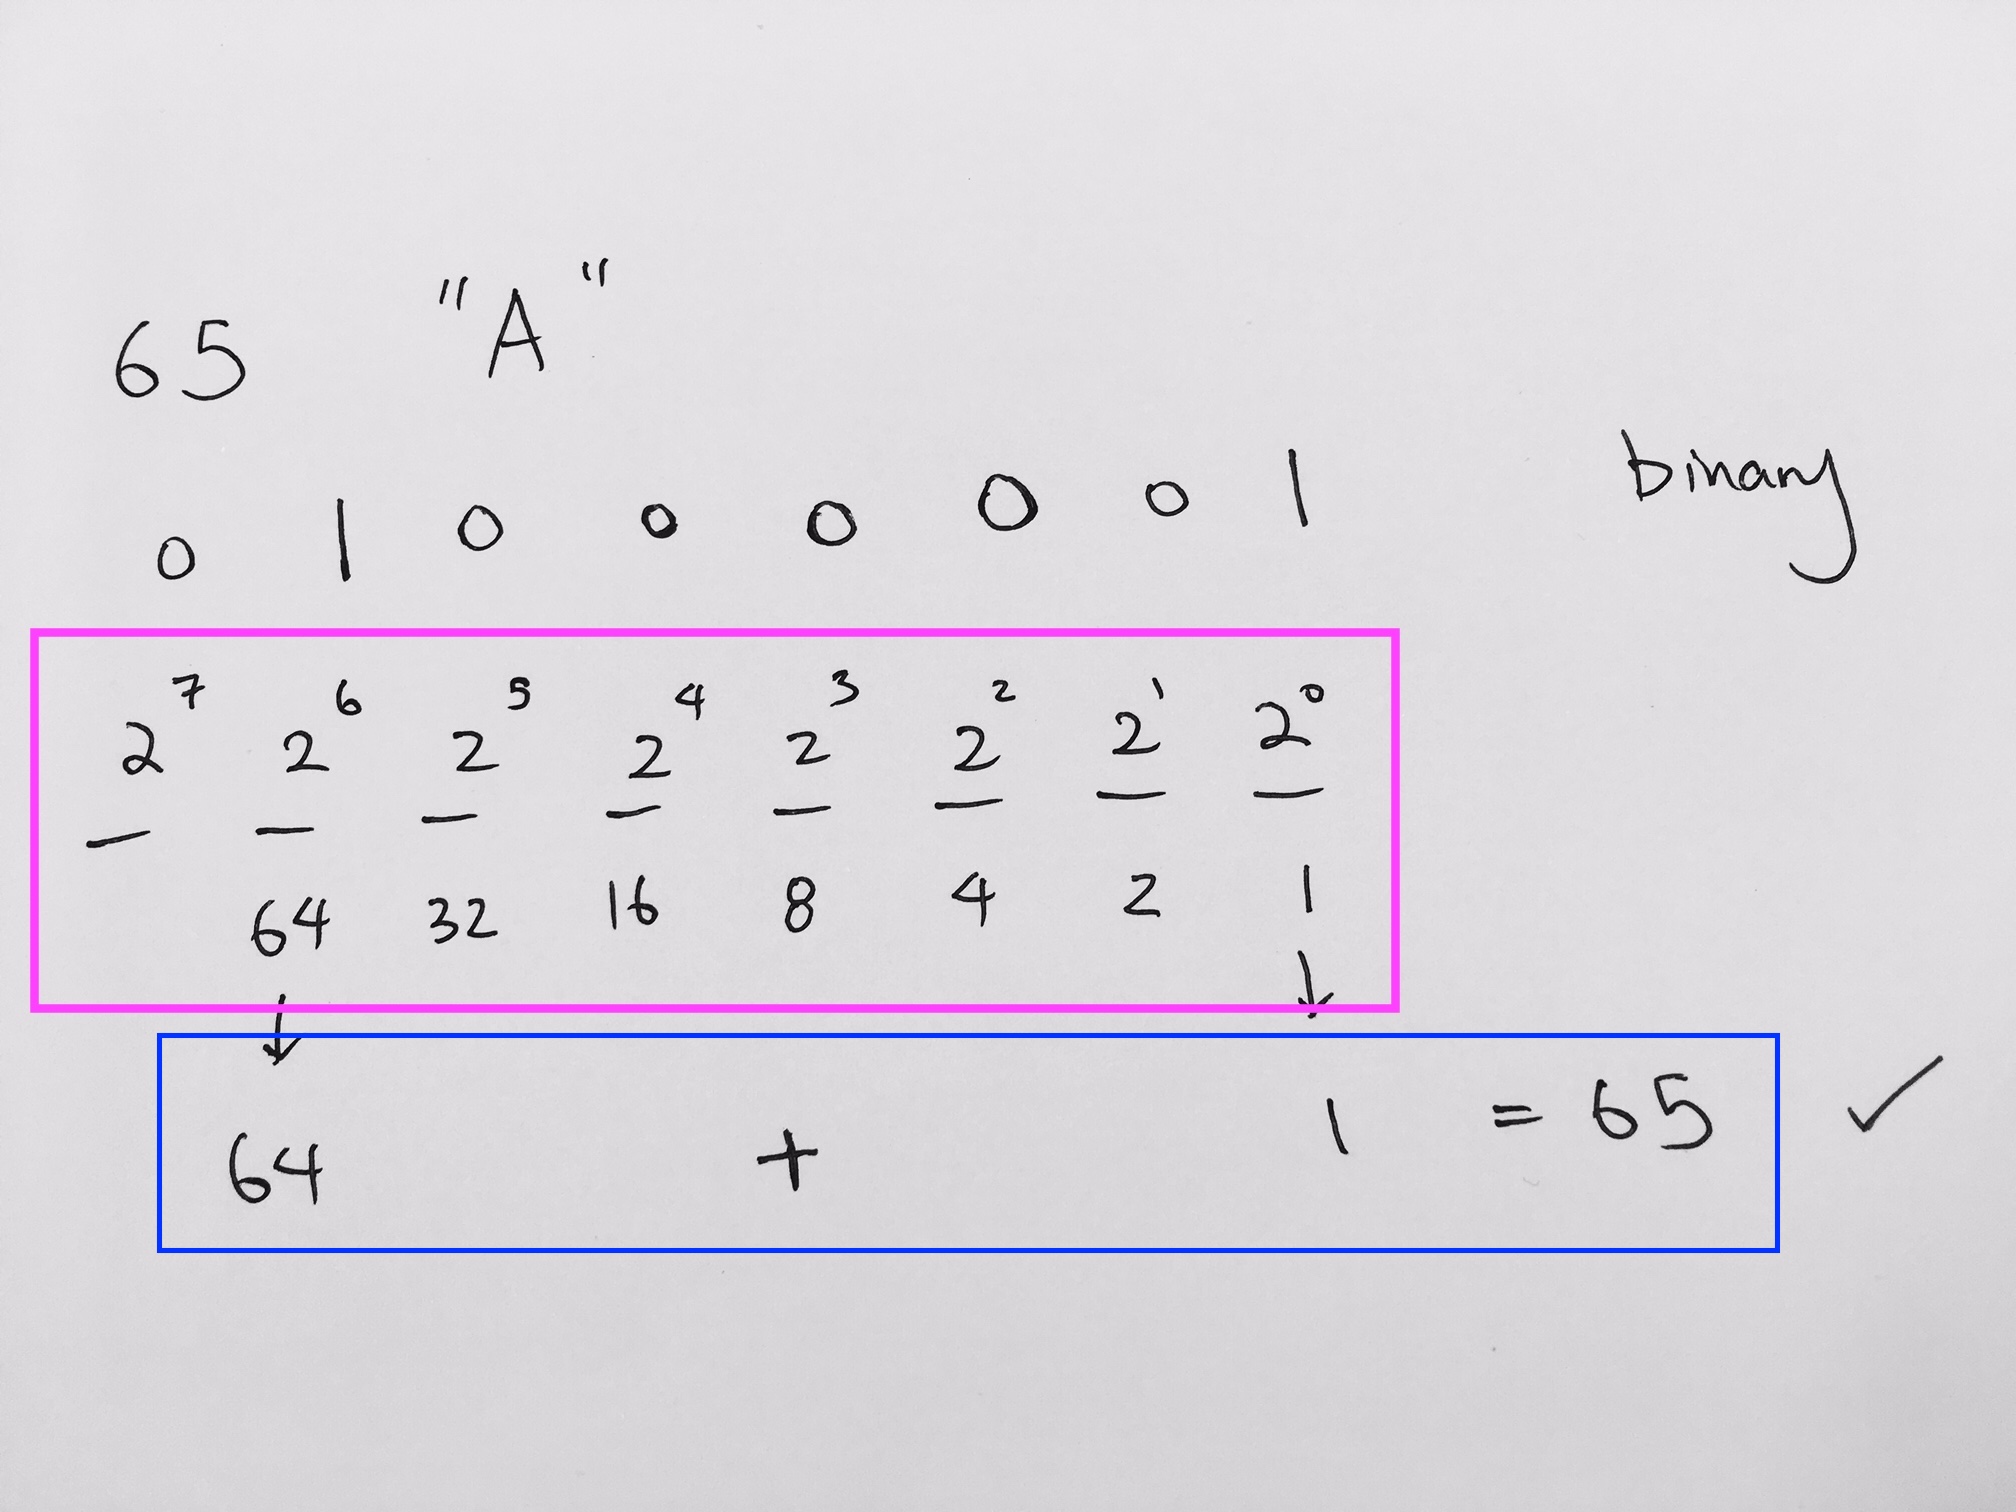 65 "A"
0 1 0 0 0 0 0 1 binary
2⁷ 2⁶ 2⁵ 2⁴ 2³ 2² 2¹ 2⁰
64 32 16 8 4 2 1
64 + 1 = 65 ✓